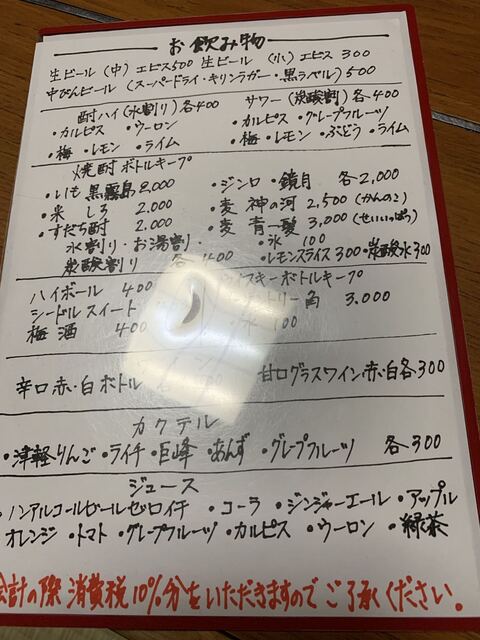 お飲み物
生ビール (中) エビス500 生ビール (小) エビス 300
中びんビール (スーパードライ・キリンラガー・黒ラベル) 500
酎ハイ (水割り) 各400
・カルピス ・ウーロン
・梅 ・レモン ・ライム
サワー (炭酸割) 各400
・カルピス ・グレープフルーツ
・梅 ・レモン ・ぶどう ・ライム
焼酎 ボトルキープ
・いも 黒霧島 2,000
・米 しろ 2,000
・すだち酎 2,000
水割り・お湯割・
炭酸割り 各400
・ジンロ ・鏡月 各2,000
・麦 神の河 2,500 (かんのこ)
・麦 青一髪 3,000 (せいいっぱつ)
・氷 100
・レモンスライス300 ・炭酸水300
ハイボール 400
シードル スイート
梅酒 400
スキーボトルキープ
トリー角 3,000
・氷 100
辛口 赤・白 ボトル
甘口グラスワイン赤・白各300
カクテル
・津軽りんご ・ライチ ・巨峰 ・あんず ・グレープフルーツ 各300
ジュース
・ノンアルコールビールゼロイチ ・コーラ ・ジンジャーエール ・アップル
オレンジ ・トマト ・グレープフルーツ ・カルピス ・ウーロン ・緑茶
会計の際 消費税 10%分をいただきますので ご了承ください。